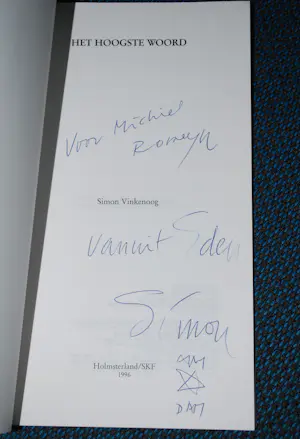 HET HOOGSTE WOORD
Voor Michiel
Romeyn
Simon Vinkenoog
vanuit Eden
Simon
Holmaterland/SKF
1996
DAM